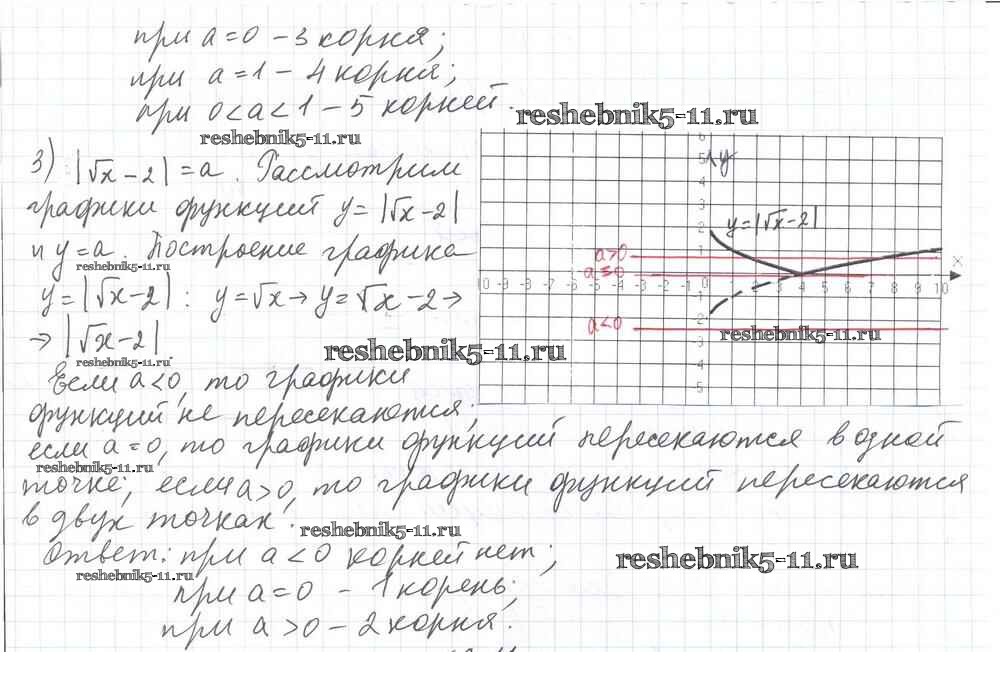 при a=0 – 3 корня;
при a=1 – 4 корня;
при 0<a<1 – 5 корней.
reshebnik5-11.ru
reshebnik5-11.ru
3) |√x – 2| = a. Рассмотрим
графики функций y=|√x-2|
и y=a. Построение графика
reshebnik5-11.ru
y=|√x-2| : y=√x → y=√x-2 →
→ |√x-2|
reshebnik5-11.ru
reshebnik5-11.ru
6
5
y
4
3
2
y=|√x-2|
1
a>0
a=0
x
10 -9 -8 -7 -6 -5 -4 -3 -2 -1 0 1 2 3 4 5 6 7 8 9 10
a<0
reshebnik5-11.ru
Если a<0, то графики
функций не пересекаются;
если a=0, то графики функций пересекаются в одной
reshebnik5-11.ru
точке; если a>0, то графики функций пересекаются
в двух точках.
reshebnik5-11.ru
Ответ: при a<0 корней нет;
reshebnik5-11.ru
reshebnik5-11.ru
при a=0 – 1 корень;
при a>0 – 2 корня.